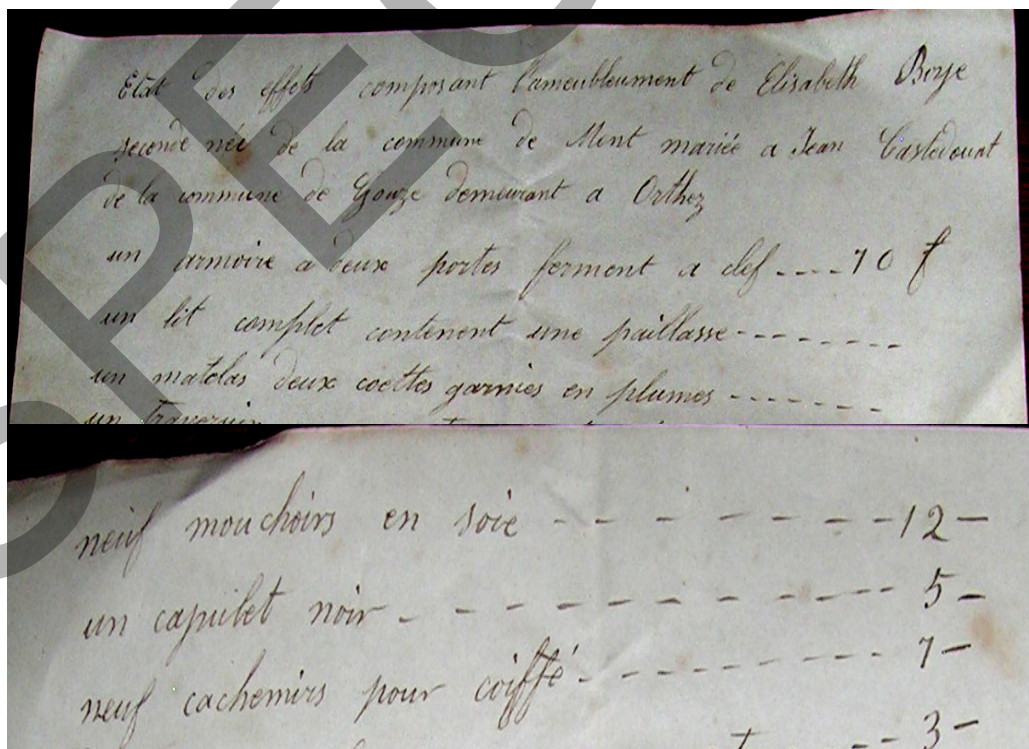 Etat des effets composant l'ameubleument de Elisabeth Boye
seconde née de la commune de Mont mariée a Jean Castedouat
de la commune de Gouze demeurant a Orthez
un armoire a deux portes ferment a clef ---- 70 f
un lit complet contenent une paillasse -------
un matelas deux coettes garnies en plumes -------
un traversin
neuf mouchoirs en soie - - - - - - - - 12 -
un capulet noir - - - - - - - - - - 5 -
neuf cachemirs pour coiffé - - - - - - - - 7 -
-- 3 -
SPEC